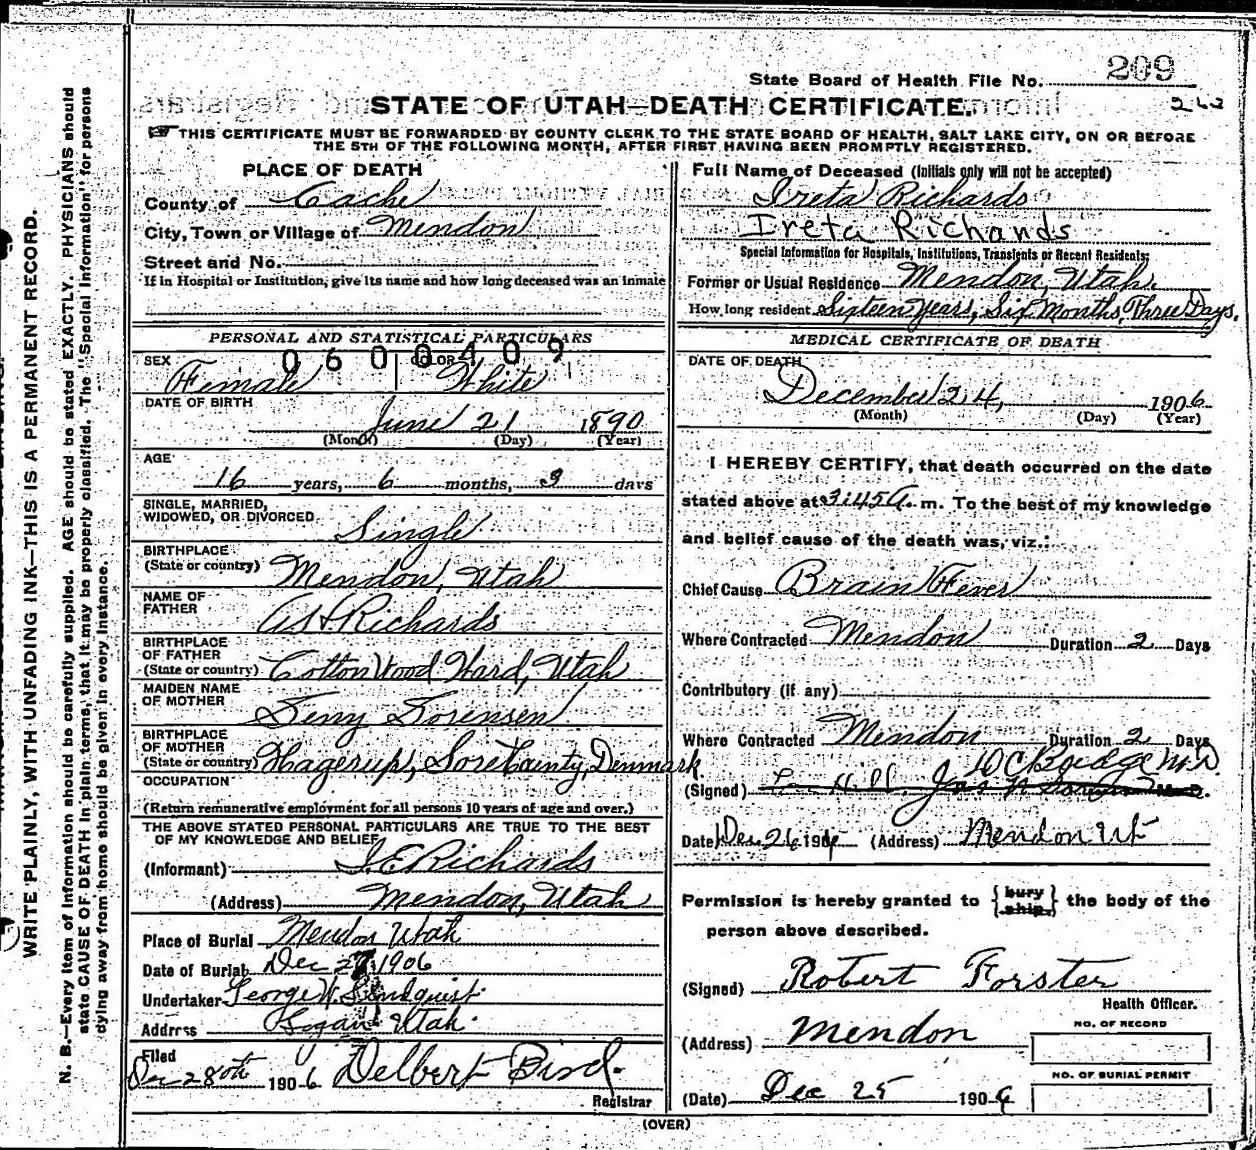 State Board of Health File No. 209
STATE OF UTAH—DEATH CERTIFICATE.
THIS CERTIFICATE MUST BE FORWARDED BY COUNTY CLERK TO THE STATE BOARD OF HEALTH, SALT LAKE CITY, ON OR BEFORE
THE 5TH OF THE FOLLOWING MONTH, AFTER FIRST HAVING BEEN PROMPTLY REGISTERED.
WRITE PLAINLY, WITH UNFADING INK—THIS IS A PERMANENT RECORD.
N. B.—Every item of information should be carefully supplied. AGE should be stated EXACTLY. PHYSICIANS should
state CAUSE OF DEATH in plain terms, that it may be properly classified. The "Special Information" for persons
dying away from home should be given in every instance.
PLACE OF DEATH
County of Cache
City, Town or Village of Mendon
Street and No.
If in Hospital or Institution, give its name and how long deceased was an inmate
PERSONAL AND STATISTICAL PARTICULARS
0600409
SEX COLOR
Female White
DATE OF BIRTH
June 21 1890
(Month) (Day) (Year)
AGE
16 years, 6 months, 3 days
SINGLE, MARRIED,
WIDOWED, OR DIVORCED Single
BIRTHPLACE
(State or country) Mendon, Utah
NAME OF
FATHER Richards
BIRTHPLACE
OF FATHER
(State or country) Cotton Wood Ward, Utah
MAIDEN NAME
OF MOTHER Seny Sorensen
BIRTHPLACE
OF MOTHER
(State or country) Hagerup, Sore County, Denmark.
OCCUPATION
(Return remunerative employment for all persons 10 years of age and over.)
THE ABOVE STATED PERSONAL PARTICULARS ARE TRUE TO THE BEST
OF MY KNOWLEDGE AND BELIEF
(Informant) Richards
(Address) Mendon, Utah
Place of Burial Mendon Utah
Date of Burial Dec 27 1906
Undertaker George W. Lindquist
Address Logan Utah.
Filed
Dec 28th 1906 Delbert Bird.
Registrar
Full Name of Deceased (Initials only will not be accepted)
Ireta Richards
Ireta Richards
Special Information for Hospitals, Institutions, Transients or Recent Residents:
Former or Usual Residence Mendon, Utah.
How long resident Sixteen Years, Six Months, Three Days.
MEDICAL CERTIFICATE OF DEATH
DATE OF DEATH
December 24, 1906
(Month) (Day) (Year)
I HEREBY CERTIFY, that death occurred on the date
stated above at 3:45 A. m. To the best of my knowledge
and belief cause of the death was, viz.:
Chief Cause Brain Fever
Where Contracted Mendon Duration 2 Days
Contributory (if any)
Where Contracted Mendon Duration 2 Days
(Signed) M.D.
Date Dec 26 1906 (Address) Mendon Ut
Permission is hereby granted to {bury ship} the body of the
person above described.
(Signed) Robert Forster
Health Officer.
(Address) Mendon
NO. OF RECORD
NO. OF BURIAL PERMIT
(Date) Dec 25 1906
(OVER)